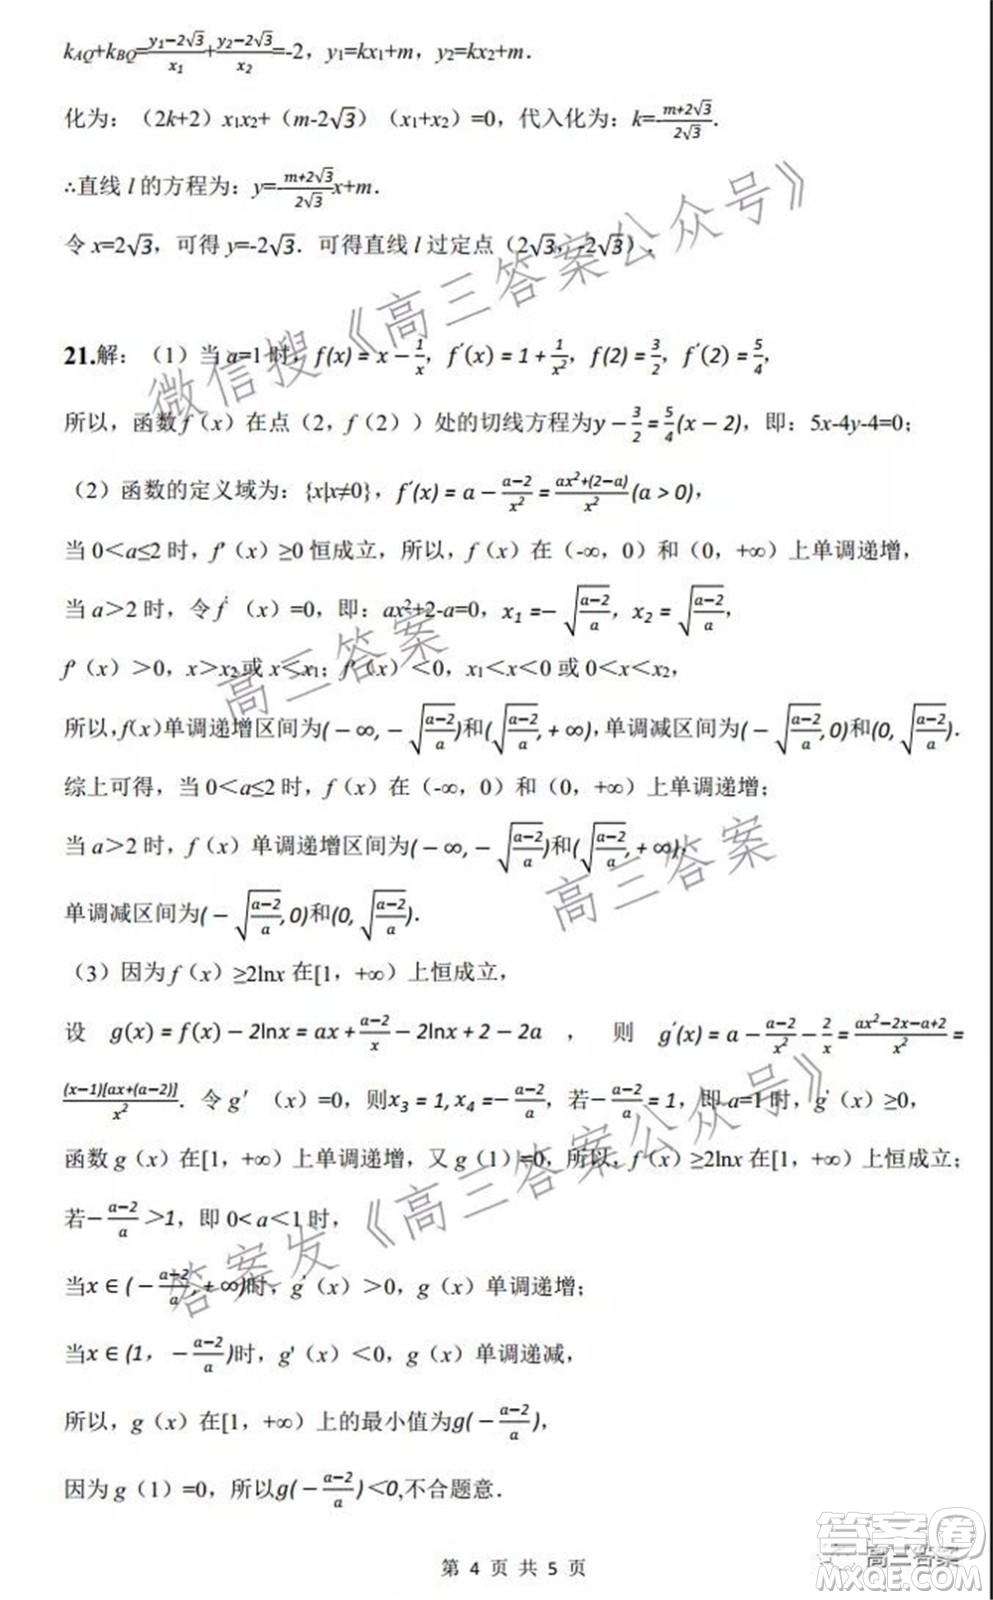 k_AQ+k_BQ=\frac{y₁−2√3}{x₁}+\frac{y₂−2√3}{x₂}=-2，y₁=kx₁+m，y₂=kx₂+m．
化为：（2k+2）x₁x₂+（m-2√3）（x₁+x₂）=0，代入化为：k=-\frac{m+2√3}{2√3}．
∴直线 l 的方程为：y=-\frac{m+2√3}{2√3}x+m．
令 x=2√3，可得 y=-2√3．可得直线 l 过定点（2√3，-2√3）．
21.解：（1）当 a=1 时，f(x) = x − \frac{1}{x}，f′(x) = 1 + \frac{1}{x²}，f(2) = \frac{3}{2}，f′(2) = \frac{5}{4}，
所以，函数 f（x）在点（2，f（2））处的切线方程为y − \frac{3}{2} = \frac{5}{4}(x − 2)，即：5x-4y-4=0；
（2）函数的定义域为：{x|x≠0}，f′(x) = a − \frac{a−2}{x²} = \frac{ax²+(2−a)}{x²}(a > 0)，
当 0＜a≤2 时，f′（x）≥0 恒成立，所以，f（x）在（-∞，0）和（0，+∞）上单调递增，
当 a＞2 时，令 f′（x）=0，即：ax²+2-a=0，x₁ =− √\frac{a−2}{a}，x₂ = √\frac{a−2}{a}，
f′（x）＞0，x＞x₂或 x＜x₁；f′（x）＜0，x₁＜x＜0 或 0＜x＜x₂，
所以，f(x)单调递增区间为(− ∞, − √\frac{a−2}{a})和(√\frac{a−2}{a}, + ∞)，单调减区间为(− √\frac{a−2}{a}, 0)和(0, √\frac{a−2}{a})．
综上可得，当 0＜a≤2 时，f（x）在（-∞，0）和（0，+∞）上单调递增；
当 a＞2 时，f（x）单调递增区间为(− ∞, − √\frac{a−2}{a})和(√\frac{a−2}{a}, + ∞)，
单调减区间为(− √\frac{a−2}{a}, 0)和(0, √\frac{a−2}{a})．
（3）因为 f（x）≥2lnx 在[1，+∞）上恒成立，
设 g(x) = f(x) − 2lnx = ax + \frac{a−2}{x} − 2lnx + 2 − 2a ，则 g′(x) = a − \frac{a−2}{x²} − \frac{2}{x} = \frac{ax²−2x−a+2}{x²} =
\frac{(x−1)[ax+(a−2)]}{x²}．令 g′（x）=0，则x₃ = 1, x₄ =− \frac{a−2}{a}，若− \frac{a−2}{a} = 1，即 a=1 时，g′（x）≥0，
函数 g（x）在[1，+∞）上单调递增，又 g（1）=0，所以，f（x）≥2lnx 在[1，+∞）上恒成立；
若− \frac{a−2}{a} >1，即 0< a＜1 时，
当x ∈ (− \frac{a−2}{a}, + ∞)时，g′（x）＞0，g（x）单调递增；
当x ∈ (1，− \frac{a−2}{a})时，g'（x）＜0，g（x）单调递减，
所以，g（x）在[1，+∞）上的最小值为g(− \frac{a−2}{a})，
因为 g（1）=0，所以g(− \frac{a−2}{a}) <0,不合题意．
第 4 页 共 5 页
微信搜《高三答案公众号》
高三答案
高三答案
答案发《高三答案公众号》
答案卷
高三答案
MXQE.COM